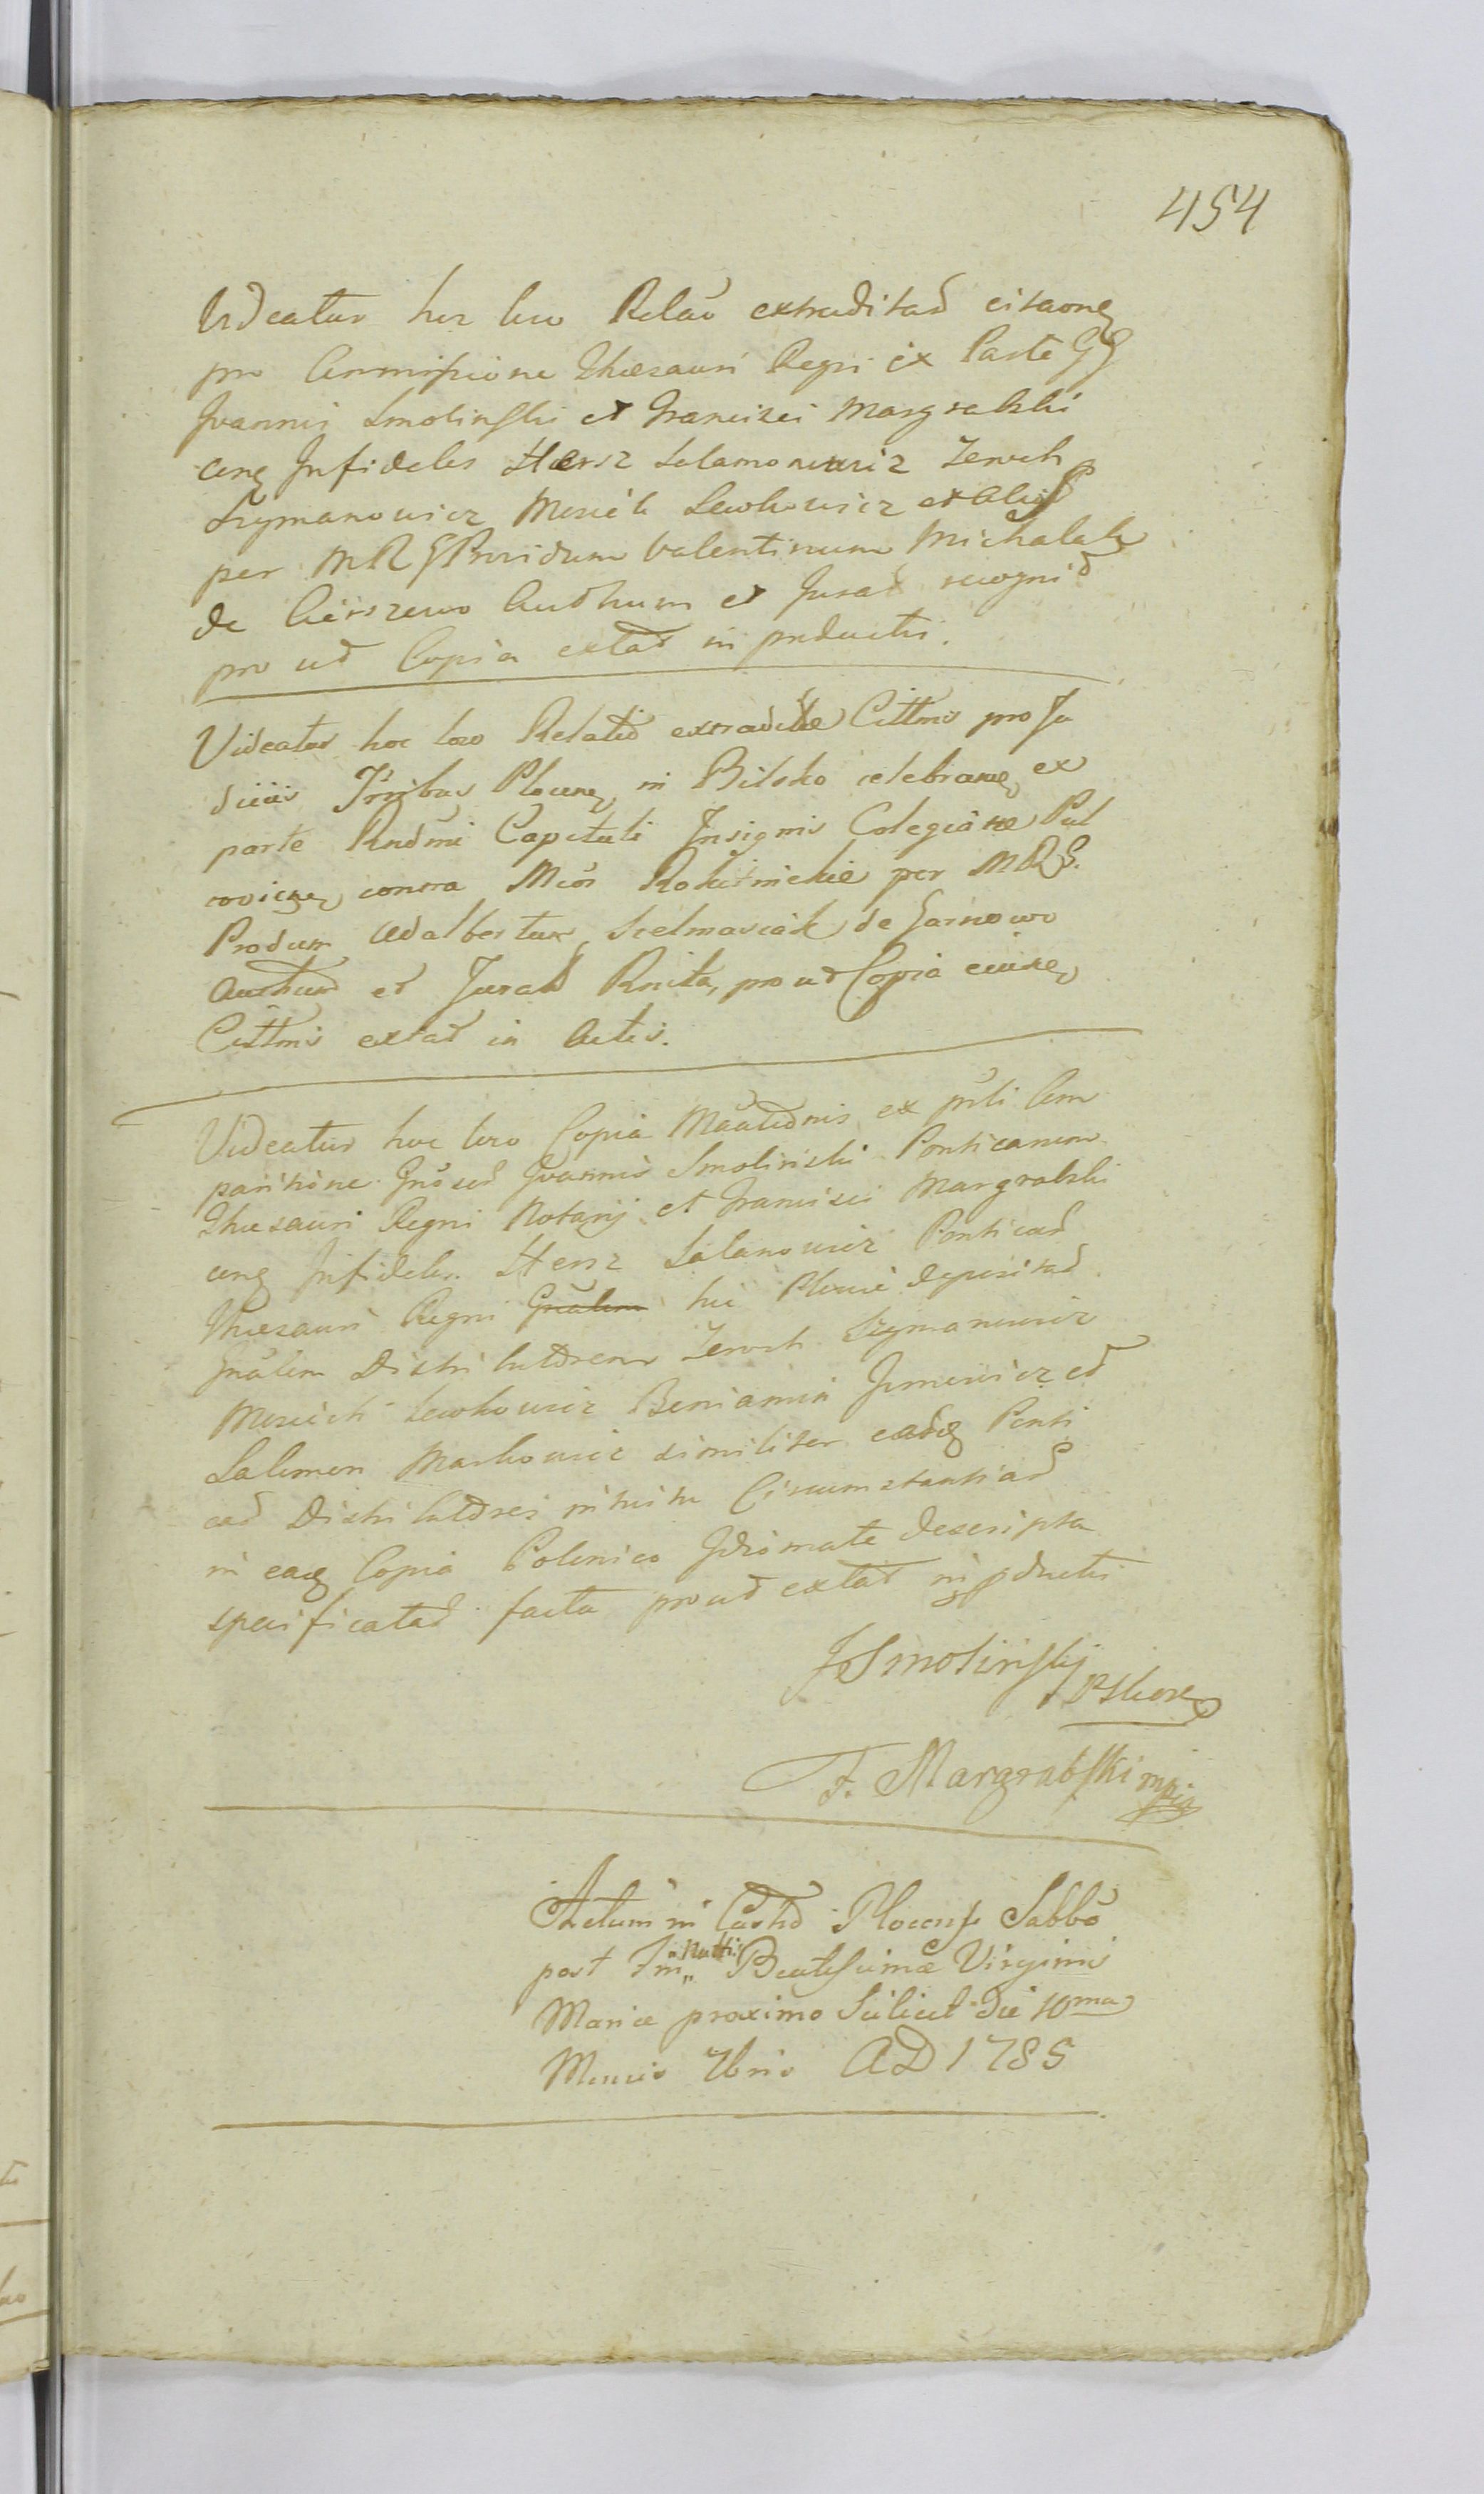 454
Videatur hoc loco Relaō extraditae citaonẹ
pro Commissione Thesauri Regni ex Parte GG
Joannis Smolinski et Francisci Margrabski
cont Infideles Hersz Salamonowicz Zeroch
Szymanowicz Moszek Lewkowicz et alios
per MRG Providum Valentinum Michalak
de Cierszewo Authum et Jurat recognit
pro ut Copia extat in productis.
Videatur hoc loco Relatio extraditae Cittnis pro Ju
diciis Trribus Plocen in Bilsko celebran ex
parte Rndmi Capituli Insignis Colegiatae Pul
toviens contra Mcos Rokitnickie per MRG.
Produm Adalbertum Szelmasiak de Garnowo
Authum et Jurat Rnita, prout Copia eiusd
Cittnis extat in Actis.
Videatur hoc loco Copia Māātiōnis ex prti Com
paritione Gnosor Joannis Smolinski Ponticanum
Thesauri Regni Notarij et Francisci Margrabski
cont Infideles Hersz Salamowicz Ponticat
Thesauri Regni Gnālem hic Plociae deposital
Gnālem Distributorem Zeroch Szymanowicz
Moszich Lewkowicz Beniamin Jmowicz et
Salomon Markowicz similiter eade Ponti
cat Distributores intuitu Circumstantiar
in eade Copia Polonico Idiomate descripta
specificatar facta prout extat in pductis
JSmolinskj
F. Margrabski mpia
Actum in Castro Plocensi Sabbo
post Fm Natti Beatissimae Virginis
Mariae proximo Scilicet die 10ma
Mensis 7bris AD 1785